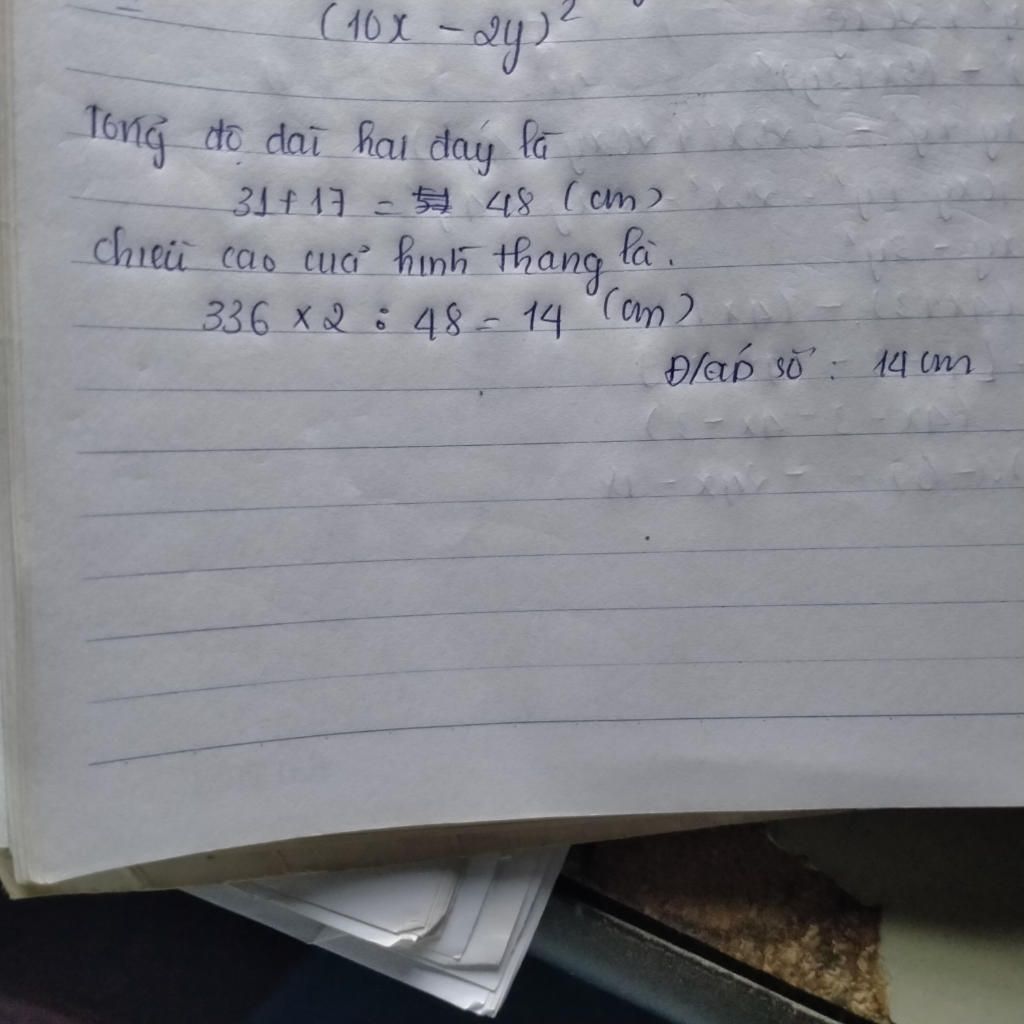 (10x - 2y)²
Tổng độ dài hai đáy là
31 + 17 = 48 (cm)
chiều cao của hình thang là.
336 x 2 : 48 = 14 (cm)
Đ/áp số : 14 cm